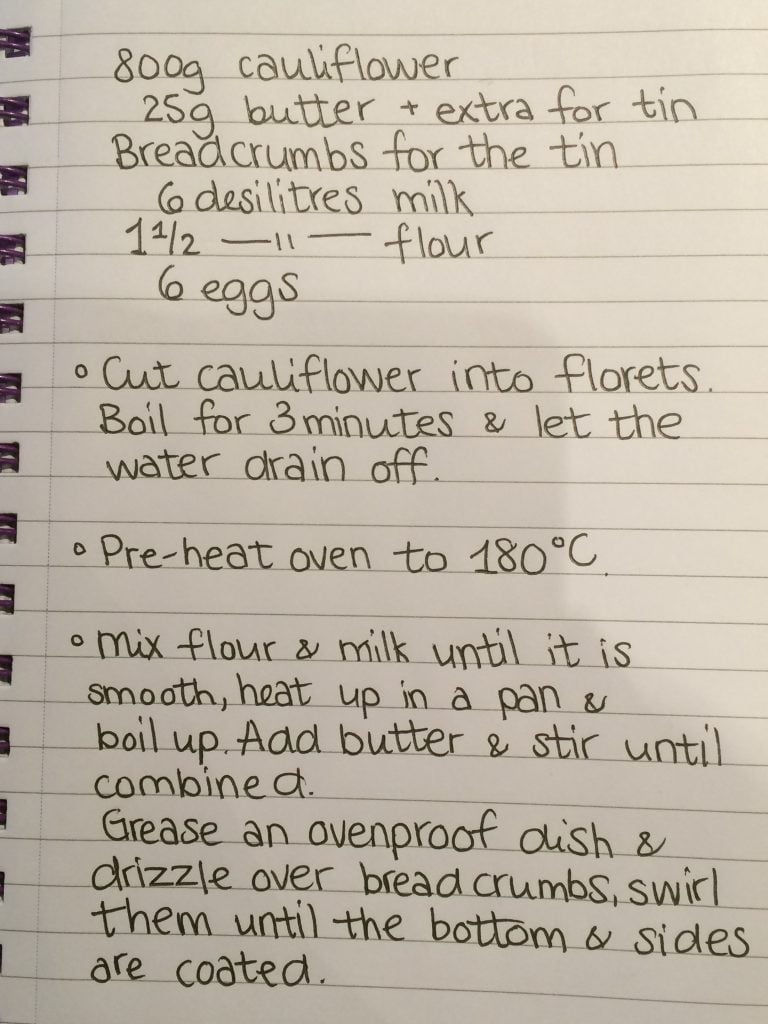 800g cauliflower
25g butter + extra for tin
Breadcrumbs for the tin
6 desilitres milk
1 1/2 —11— flour
6 eggs
° Cut cauliflower into florets.
Boil for 3 minutes & let the
water drain off.
° Pre-heat oven to 180°C.
° Mix flour & milk until it is
smooth, heat up in a pan &
boil up. Add butter & stir until
combined.
Grease an ovenproof dish &
drizzle over breadcrumbs, swirl
them until the bottom & sides
are coated.